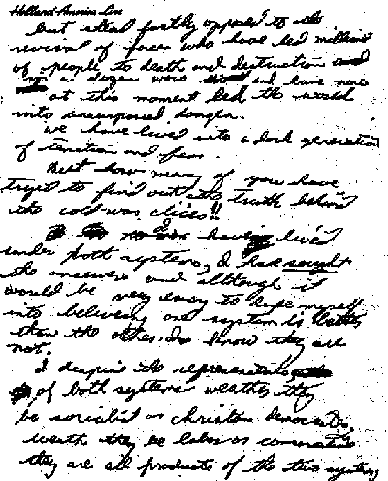 Holland-America Line
but stand firmly opposed to the
revival of forces who have led millions
of people to death and destruction and
in a dozen wars and have now
at this moment led the world
into unsurpassed danger.
We have lived into a dark generation
of tension and fear.
But how many of you have
tryed to find out the truth behind
the cold war clices!!
I having lived
under both systems, I have sought
the answers and although it
would be very easy to dupe myself
into believing one system is better
than the other, I know they are
not.
I despise the representatives
of both systems weather they
be socialist or christan democrats,
weath they be labor or conservative
they are all products of the two systems